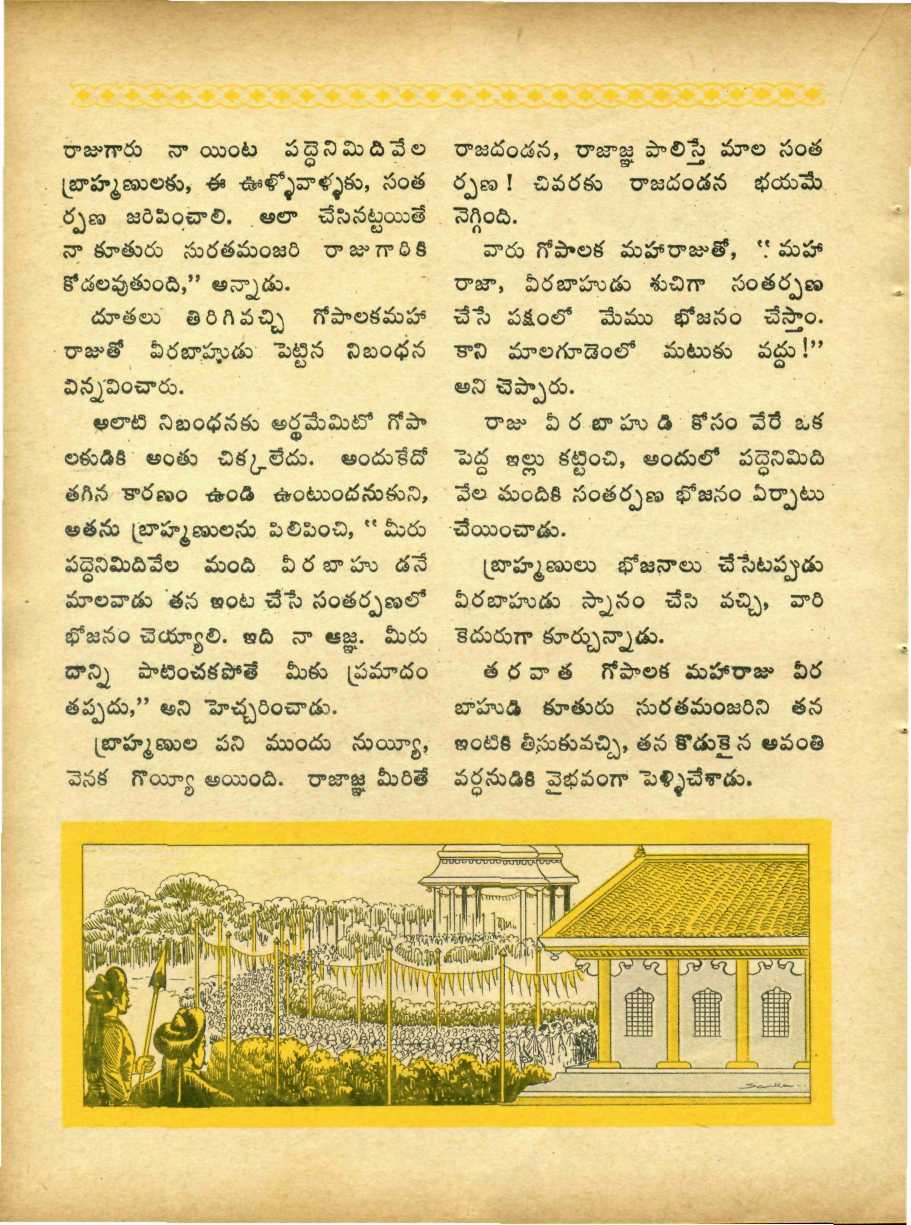 రాజుగారు నా యింట పద్ధెనిమిదివేల
బ్రాహ్మణులకు, ఈ ఊళ్ళోవాళ్ళకు, సంత
ర్పణ జరిపించాలి. అలా చేసినట్టయితే
నా కూతురు సురతమంజరి రాజుగారికి
కోడలవుతుంది,” అన్నాడు.
దూతలు తిరిగివచ్చి గోపాలకమహా
రాజుతో వీరబాహుడు పెట్టిన నిబంధన
విన్నవించారు.
అలాటి నిబంధనకు అర్థమేమిటో గోపా
లకుడికి అంతు చిక్కలేదు. అందుకేదో
తగిన కారణం ఉండి ఉంటుందనుకుని,
అతను బ్రాహ్మణులను పిలిపించి, “మీరు
పద్ధెనిమిదివేల మంది వీరబాహు డనే
మాలవాడు తన ఇంట చేసే సంతర్పణలో
భోజనం చెయ్యాలి. ఇది నా ఆజ్ఞ. మీరు
దాన్ని పాటించకపోతే మీకు ప్రమాదం
తప్పదు,” అని హెచ్చరించాడు.
బ్రాహ్మణుల పని ముందు నుయ్యీ,
వెనక గొయ్యీ అయింది. రాజాజ్ఞ మీరితే
రాజదండన, రాజాజ్ఞ పాలిస్తే మాల సంత
ర్పణ! చివరకు రాజదండన భయమే
నెగ్గింది.
వారు గోపాలక మహారాజుతో, “మహా
రాజా, వీరబాహుడు శుచిగా సంతర్పణ
చేసే పక్షంలో మేము భోజనం చేస్తాం.
కాని మాలగూడెంలో మటుకు వద్దు!”
అని చెప్పారు.
రాజు వీరబాహుడి కోసం వేరే ఒక
పెద్ద ఇల్లు కట్టించి, అందులో పద్ధెనిమిది
వేల మందికి సంతర్పణ భోజనం ఏర్పాటు
చేయించాడు.
బ్రాహ్మణులు భోజనాలు చేసేటప్పుడు
వీరబాహుడు స్నానం చేసి వచ్చి, వారి
కెదురుగా కూర్చున్నాడు.
తరవాత గోపాలక మహారాజు వీర
బాహుడి కూతురు సురతమంజరిని తన
ఇంటికి తీసుకువచ్చి, తన కొడుకైన అవంతి
వర్ధనుడికి వైభవంగా పెళ్ళిచేశాడు.